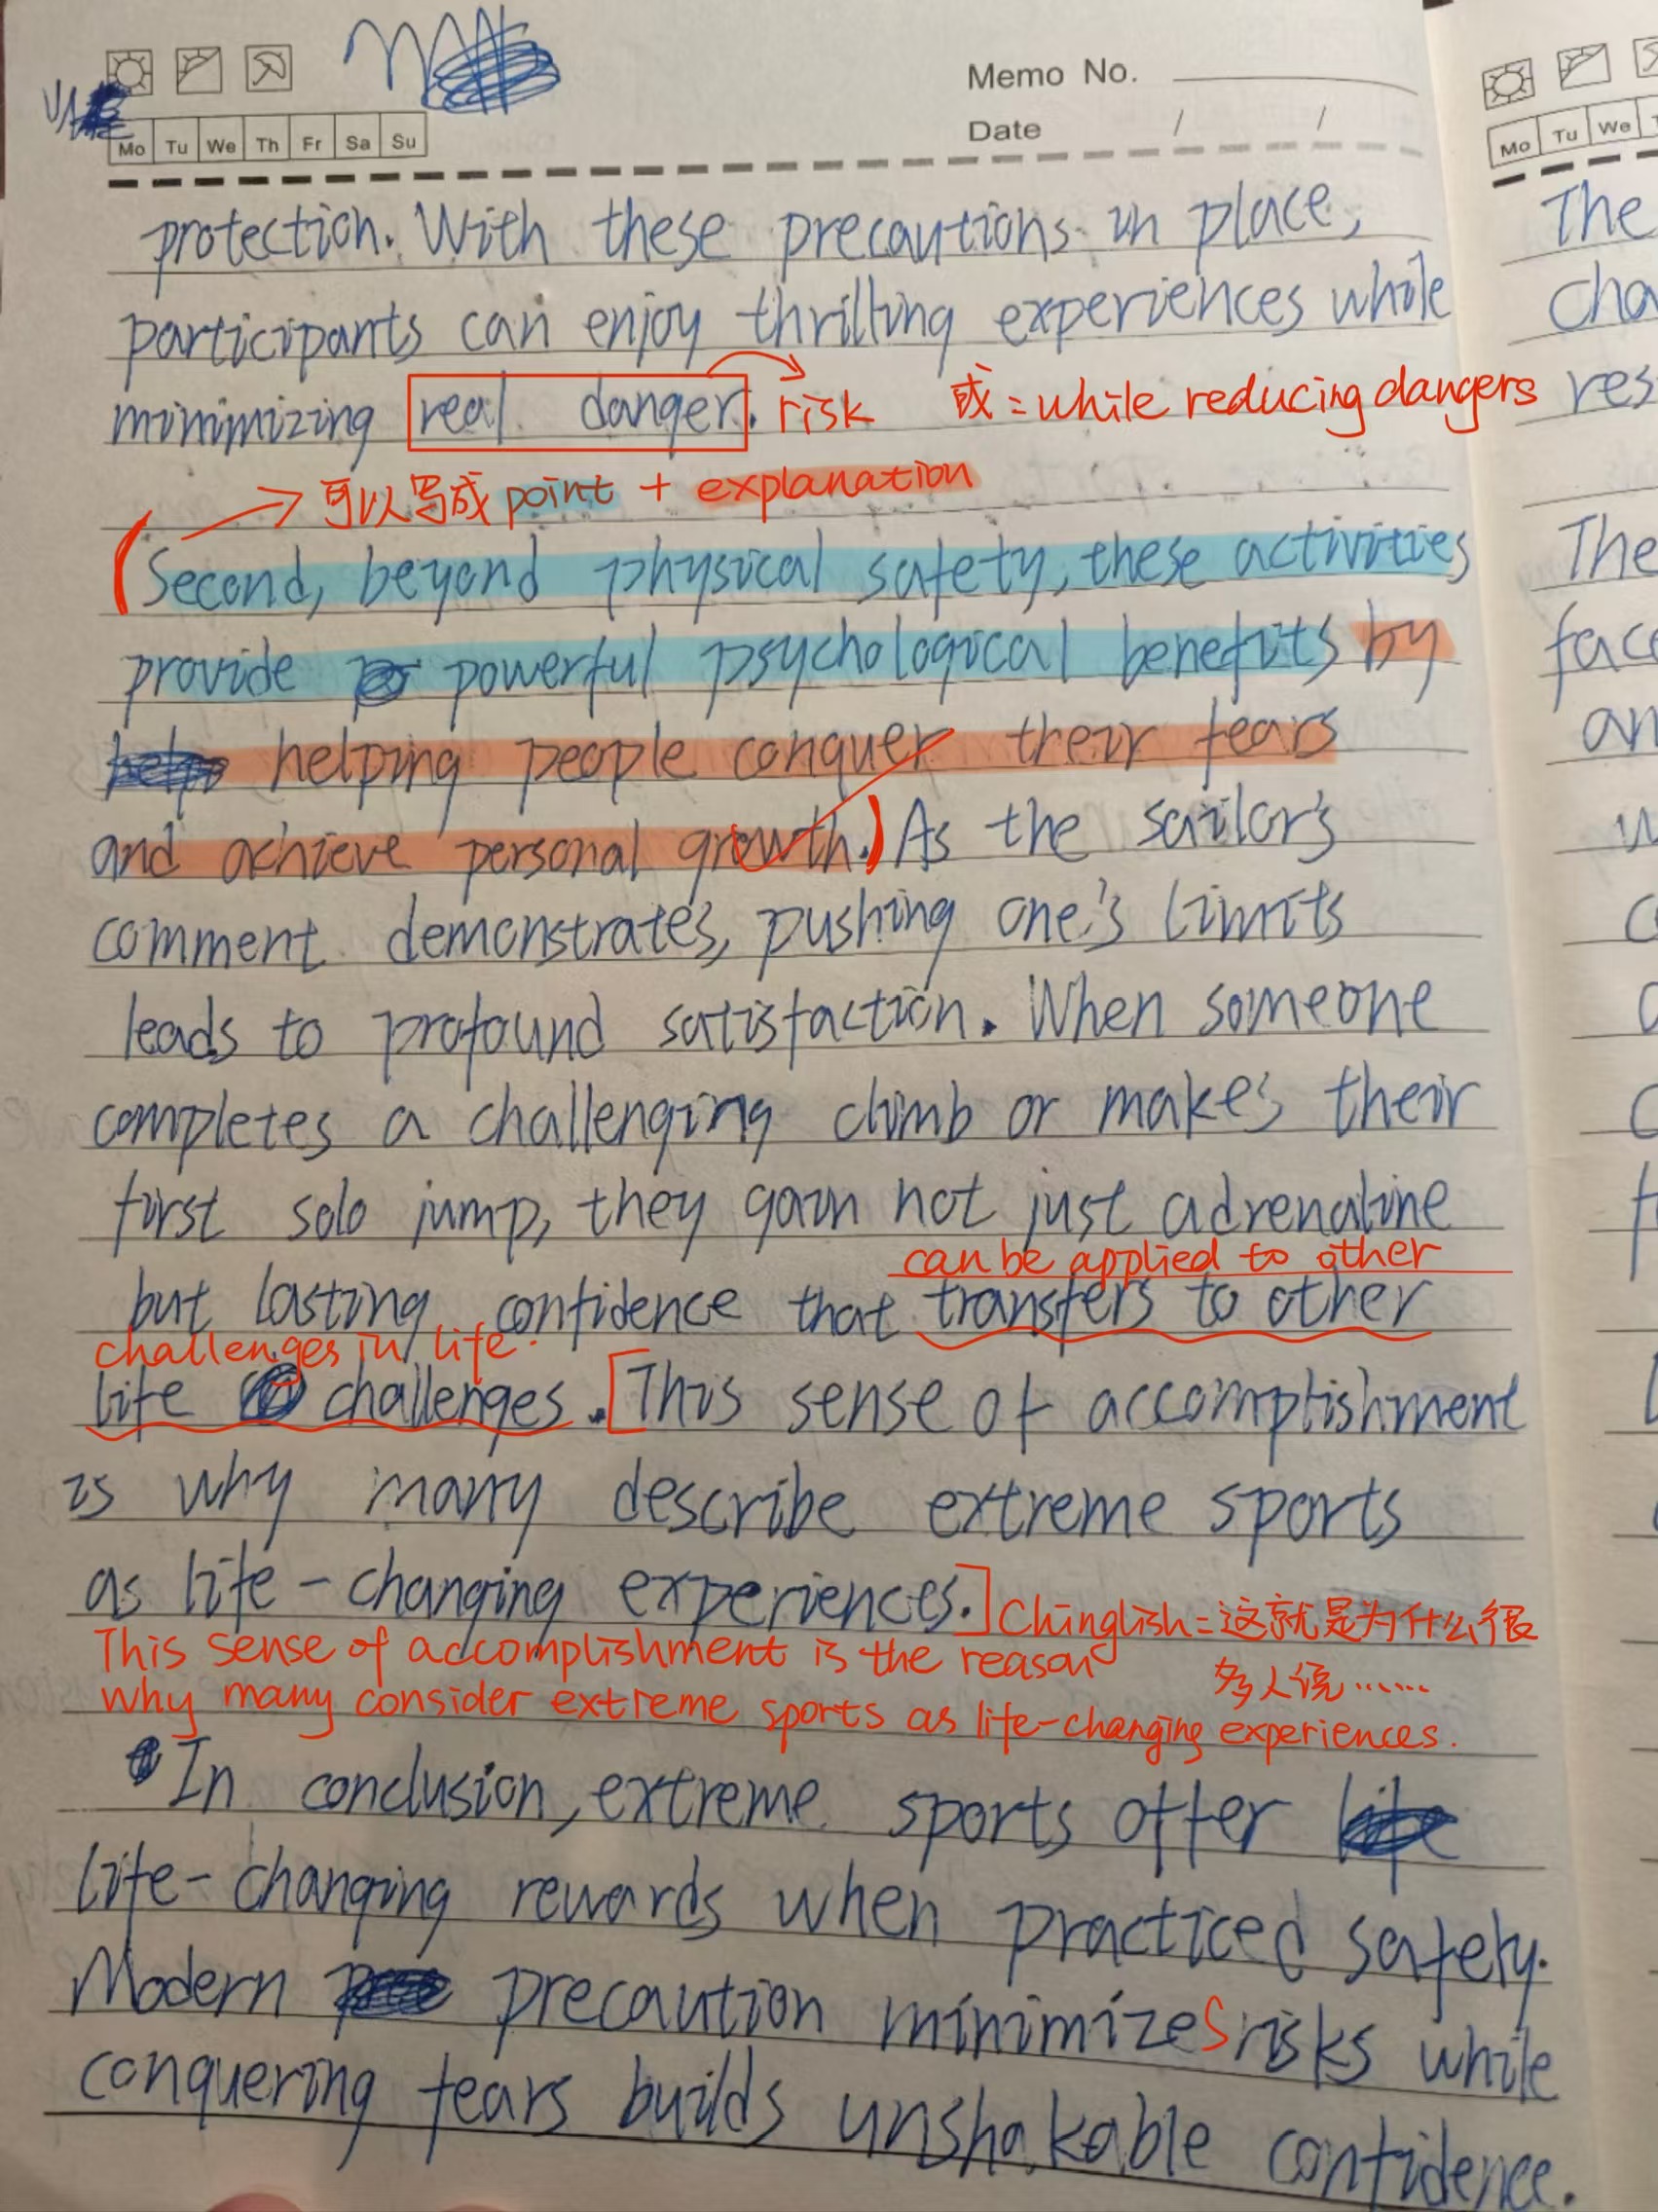 Memo No.
Date / /
Mo Tu We Th Fr Sa Su
Mo Tu We
protection. With these precautions in place,
participants can enjoy thrilling experiences while
minimizing real danger. risk 或=while reducing dangers
→可以写成 point + explanation
(Second, beyond physical safety, these activities
provide powerful psychological benefits by
helping people conquer their fears
and achieve personal growth.) As the sailor's
comment demonstrates, pushing one's limits
leads to profound satisfaction. When someone
completes a challenging climb or makes their
first solo jump, they gain not just adrenaline
can be applied to other
but lasting confidence that transfers to other
challenges in life.
life challenges. [This sense of accomplishment
is why many describe extreme sports
as life-changing experiences.] Chinglish=这就是为什么很
多人说……
This sense of accomplishment is the reason
why many consider extreme sports as life-changing experiences.
In conclusion, extreme sports offer
life-changing rewards when practiced safely.
Modern precaution minimizes risks while
conquering fears builds unshakable confidence.
The
cha
res
The
face
an